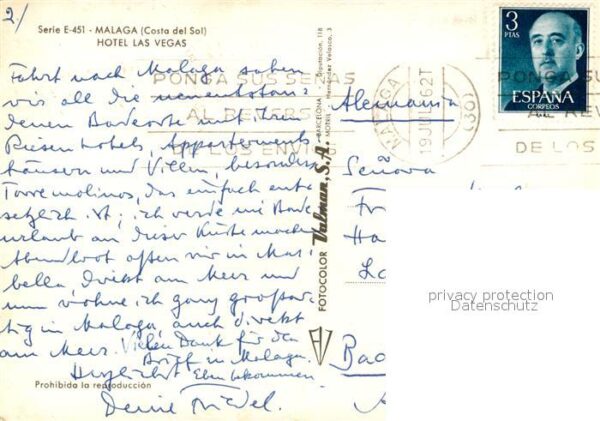 2./
Serie E-451 - MALAGA (Costa del Sol)
HOTEL LAS VEGAS
Fahrt nach Malaga sahen
wir all die neuentstan=
denen Badeorte mit ihren
Riesenhotels, Appartements
häusern und Villen, besonders
Torremolinos, das einfach ent=
setzlich ist; ich werde nie Bade
urlaub an dieser Küste machen
Abendbrot aßen wir in Mar=
bella, direkt am Meer und
nun wohne ich ganz großar=
tig in Malaga, auch direkt
am Meer. Vielen Dank für den
Brief in Malaga.
Herzlichst Eben bekommen
Deine
Prohibida la reproducción
FOTOCOLOR Valman, S.A.
BARCELONA - Diputación, 118
Hernández Velasco, 3
3
PTAS
ESPAÑA
CORREOS
PONGA SUS SEÑAS
MALAGA
19 JUL
(30)
PONGA SUS SEÑAS
DE LOS
Alemania
Señora
Fr
Ha
Bad
privacy protection
Datenschutz